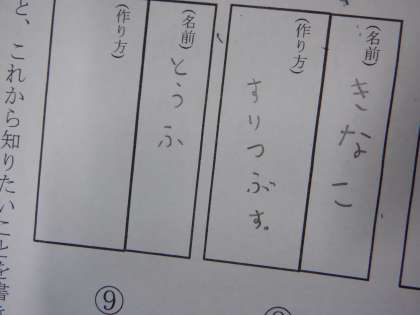 (名前)
きなこ
(作り方)
すりつぶす。
(名前)
とうふ
(作り方)
⑨
と、これから知りたいことを書